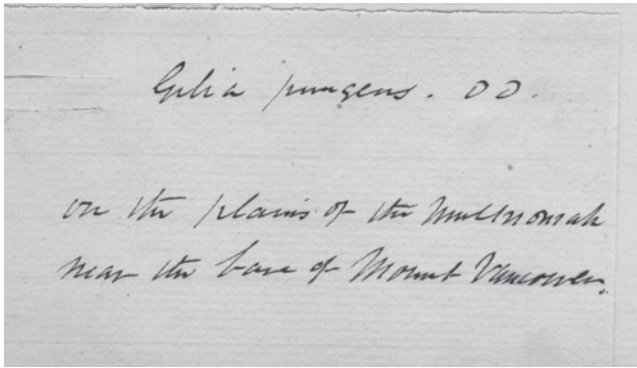 Gilia pungens. DD.
on the plains of the Multnomah
near the base of Mount Vancouver.